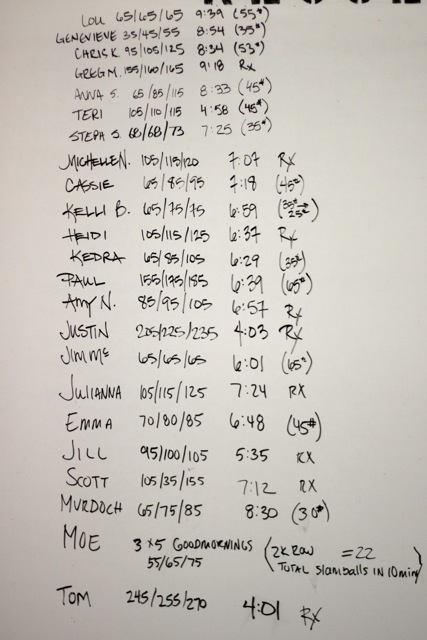 LOU 65/65/65 9:39 (55#)
GENEVIEVE 35/45/55 8:54 (35#)
CHRIS K. 95/105/125 8:34 (53#)
GREG M. 155/160/165 9:18 RX
ANNA S. 65/85/115 8:33 (45#)
TERI 105/110/115 4:58 (45#)
STEPH S. 68/68/73 7:25 (35#)
MICHELLE N. 105/115/120 7:07 RX
CASSIE 65/85/95 7:18 (45#)
KELLI B. 65/75/75 6:59 (35#→25#)
HEIDI 105/115/125 6:37 RX
KEDRA 65/85/105 6:29 (35#)
PAUL 155/175/185 6:39 (65#)
AMY N. 85/95/105 6:57 RX
JUSTIN 205/225/235 4:03 RX
JIMME 65/65/65 6:01 (65#)
JULIANNA 105/115/125 7:24 RX
EMMA 70/80/85 6:48 (45#)
JILL 95/100/105 5:35 RX
SCOTT 105/35/155 7:12 RX
MURDOCH 65/75/85 8:30 (30#)
MOE 3x5 GOODMORNINGS (2K ROW =22
55/65/75 TOTAL slamballs IN 10min)
TOM 245/255/270 4:01 RX